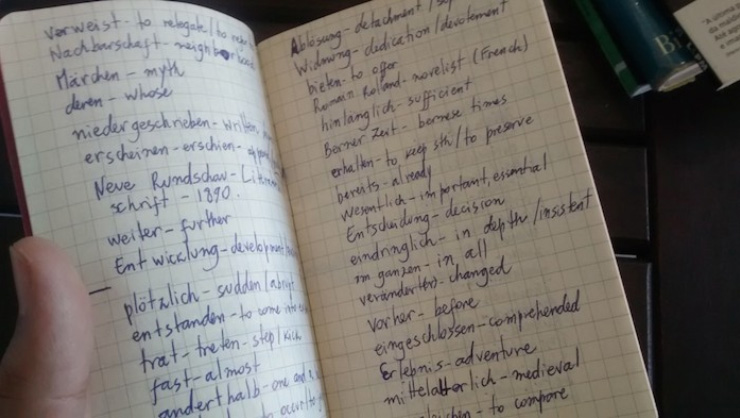 verweist - to relegate / to
Nachbarschaft - neighborhood
Märchen - myth
deren - whose
niedergeschrieben - written,
erscheinen - erschien -
Neue Rundschau -
schrift - 1890.
weiter - further
Entwicklung - development
plötzlich - sudden /
entstanden - to come into
trat - treten - step / kick
fast - almost
anderthalb - one and
Ablösung - detachment /
Widmung - dedication / devotement
bieten - to offer
Romain Rolland - novelist (French)
hinlänglich - sufficient
Berner Zeit - bernese times
erhalten - to keep sth / to preserve
bereits - already
wesentlich - important, essential
Entscheidung - decision
eindringlich - in depth / insistent
im ganzen - in all
veränderten - changed
vorher - before
eingeschlossen - comprehended
Erlebnis - adventure
mittelalterlich - medieval
- to compare